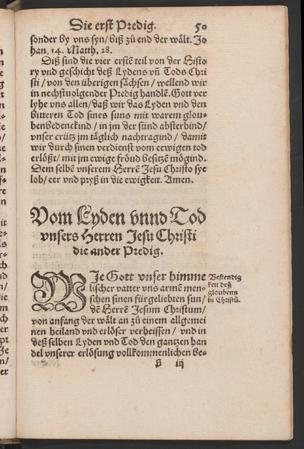 Die erst Predig. 50
sonder by vns syn/ biß zů end der wält. Jo
han. 14. Matth. 28.
Diß sind die vier erstē teil von der Histo
ry vnd geschicht deß Lydens vñ Tods Chri
sti/ von den überigen sächsen/ wellend wir
in nechstuolgender Predig handlē. Gott ver
lyhe vns allen/ daß wir das Lyden vnd den
bitteren Tod sines suns mit warem glou-
ben bedenckind/ in jm der sünd absterbind/
vnser crütz jm täglich nachtragind/ damit
wir durch sinen verdienst vom eewigen tod
erlößt/ mit jm ewige fröud besitzē mögind.
Dem selbē vnserem Herrē Jesu Christo sye
lob/ eer vnd pryß in die ewigkeit. Amen.
Vom Lyden vnnd Tod
vnsers Herren Jesu Christi
die ander Predig.
WJe Gott vnser himme
lischer vatter vns armē men-
schen sinen fürgeliebten sun/
dē Herrē Jesum Christum/
von anfang der wält an zů einem allgemei
nen heiland vnd erlöser verheissen/ vnd in
deß selben Lyden vnd Tod den gantzen han
del vnserer erlösung vollkommenlichen be-
Bestendig
ken deß
gloubens
in Christū.
iij